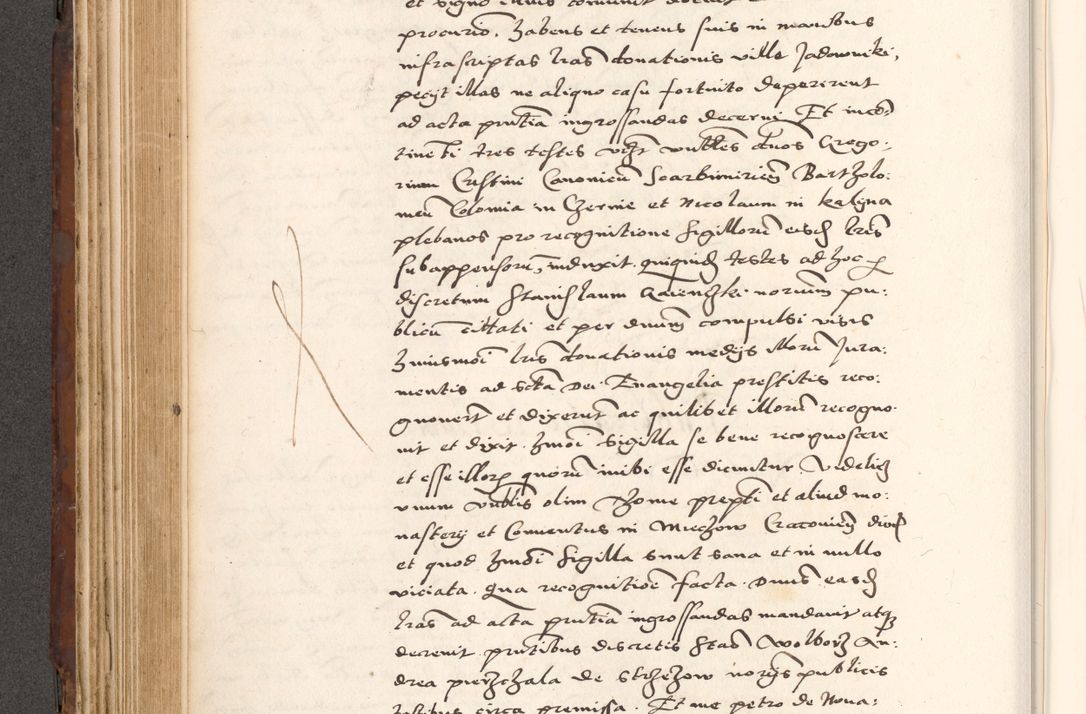 procurio. habens et tenens suis in manibus
infrascriptas lras donationis ville Jadowniki,
pecijt illas ne aliquo casu fortuito deperirent
ad acta pntia ingrossandas decerni Et incō
tinēti tres testes vzt vnbles dnos Grego:
rium Custini Canonicū Scarbimirieñ Bartholo:
meū Colomia in Czernie et Nicolaum in Kalyna
plebanos pro recognitione sigillorū eisd lris
subappensorū, induxit. quiquid testes ad hoc p
discretum Stanislaum notrium pu:
blicū cittati et per dnum compulsi visis
hmusmōi lris donationis medijs illorū Jura:
mentis ad scta Dei Euangelia prestitis reco:
gnouert et dixerunt ac quilibet illorū recogno
uit et dixit hmōi sigilla se bene recognoscere
et esse illorz quorū inibi esse dicuntur Videliz
vnum vnblis olim Thome prepti et aliud mo:
nasterij et Conuentus in Miechow Cracouieñ dioc
et quod hmōi sigilla sunt sana et in nullo
viciata. Qua recognitioē facta. Dnus easd
lras ad acta pntia ingrossandas mandauit atqz
decreuit pntibus discretis Stas Wolborz An:
drea pierzchala de Strzezow notrijs publicis
testibus circa premissa. Et me petro de Noua: